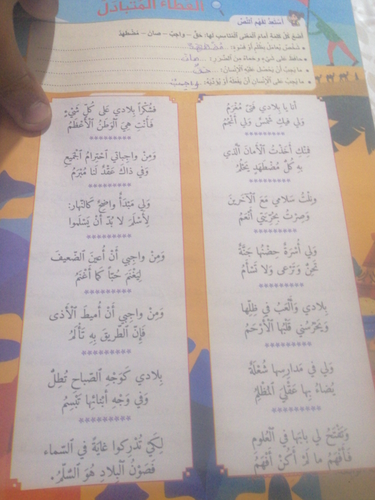 العطاء المتبادل
أَسْتَعِدُّ لِفَهْمِ النَّصِّ:
أَضَعُ كُلَّ كَلِمَةٍ أَمامَ المَعْنى المُناسِبِ لَها: حَقّ – واجِبٌ – صانَ – مُضْطَهَدٌ
شَخْصٌ يُعامَلُ بِظُلْمٍ أَوْ قَسْوَةٍ: مُضْطَهَدٌ
حافَظَ عَلى شَيْءٍ وَحَماهُ مِنَ الضَّرَرِ: صانَ
ما يَجِبُ أَنْ يَحْصُلَ عَلَيْهِ الإِنْسانُ: حَقٌّ
ما يَجِبُ عَلى الإِنْسانِ أَنْ يَفْعَلَهُ أَوْ يُؤَدِّيَهُ: واجِبٌ
أَنا يا بِلادي فَتًى مُغْرَمُ
وَلي فيكِ شَمْسٌ وَلي أَنْجُمُ
فَمِنْكِ أَخَذْتُ الأَمانَ الَّذي
بِهِ كُلُّ مُضْطَهَدٍ يَحْلُمُ
وَنِلْتُ سَلامي مَعَ الآخَرينَ
وَصِرْتُ بِحُرِّيَّتي أَنْعَمُ
وَلي أُسْرَةٌ حِضْنُها جَنَّةٌ
تَحِنُّ وَتَرْعى وَلا تَسْأَمُ
بِلادي وَأَلْعَبُ في ظِلِّها
وَيَحْرُسُني قَلْبُها الأَرْحَمُ
وَلي في مَدارِسِها شُعْلَةٌ
يُضاءُ بِها عَقْلِيَ المُظْلِمُ
وَتَفْتَحُ لي بابَها في العُلومِ
فَأَفْهَمُ ما لَمْ أَكُنْ أَفْهَمُ
فَشُكْرًا بِلادي عَلى كُلِّ شَيْءٍ
فَأَنْتِ هِيَ الوَطَنُ الأَعْظَمُ
وَمِنْ واجِباتي احْتِرامُ الجَميعِ
وَفي ذاكَ عَقْدٌ لَنا مُبْرَمُ
وَلي مَبْدَأٌ واضِحٌ كَالنَّهارِ:
لِأَسْلَمَ لا بُدَّ أَنْ يَسْلَموا
وَمِنْ واجِبي أَنْ أُعينَ الضَّعيفَ
لِيَغْنَمَ حُبًّا كَما أَغْنَمُ
وَمِنْ واجِبي أَنْ أُميطَ الأَذى
فَإِنَّ الطَّريقَ بِهِ تَأْلَمُ
بِلادي كَوَجْهِ الصَّباحِ تُطِلُّ
وَفي وَجْهِ أَبْنائِها تَبْسِمُ
لِكَيْ تُدْرِكوا غايَةً في السَّماءِ
فَصَوْنُ البِلادِ هُوَ السُّلَّمُ.